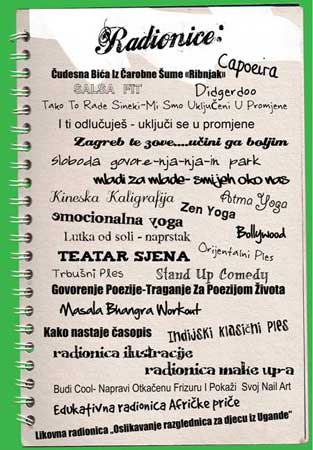 Radionice:
Čudesna Bića Iz Čarobne Šume «Ribnjak»
Capoeira
SALSA FIT
Didgerdoo
Tako To Rade Sineki-Mi Smo Uključeni U Promjene
I ti odlučuješ - uključi se u promjene
Zagreb te zove....učini ga boljim
sloboda govore-nja-nja-in park
mladi za mlade- smijeh oko nas
Kineska Kaligrafija
Atma Yoga
Zen Yoga
emocionalna yoga
Lutka od soli - naprstak
Bollywood
TEATAR SJENA
Orijentalni Ples
Trbušni Ples
Stand Up Comedy
Govorenje Poezije-Traganje Za Poezijom Života
Masala Bhangra Workout
Kako nastaje časopis
Indijski klasični ples
radionica ilustracije
radionica make up-a
Budi Cool- Napravi Otkačenu Frizuru I Pokaži Svoj Nail Art
Edukativna radionica Afričke priče
Likovna radionica „Oslikavanje razglednica za djecu iz Ugande"